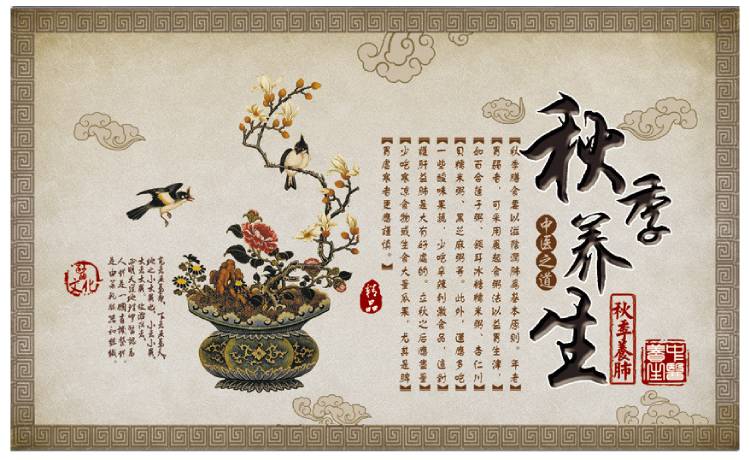 秋季养生
中医之道
秋季養肺
中醫養生
【秋季膳食要以滋陰潤肺為基本原則。年老】
【胃弱者，可采用晨起食粥法以益胃生津，】
【如百合蓮子粥、銀耳冰糖糯米粥、杏仁川】
【貝糯米粥、黑芝麻粥等。此外，還應多吃】
【一些酸味果蔬，少吃辛辣刺激食品，這對】
【護肝益肺是大有好處的。立秋之后應盡量】
【少吃寒涼食物或生食大量瓜果，尤其是脾】
【胃虛寒者更應謹慎。】
精品
文化